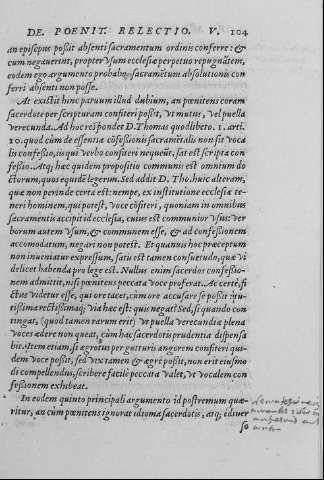 DE. POENIT. RELECTIO. V. 104
an episcopus possit absenti sacramentum ordinis conferre: &
cum negauerint, propter vsum ecclesiæ perpetuo repugnātem,
eodem ego argumento probabo, sacramētum absolutionis con
ferri absenti non posse.
At existit hinc paruum illud dubium, an pœnitens coram
sacerdote per scripturam confiteri possit, vt mutus, vel puella
verecunda. Ad hoc respondet D. Thomas quodlibeto. 1. arti.
10. quod cùm de essentia cōfessionis sacramētalis non sit voca
lis confessio, iis qui verbo confiteri nequeūt, sat est scripta con
fessio. Atq; hæc quidem propositio communis est omnium do
ctorum, quos equidē legerim. Sed addit D. Tho. huic alteram,
quæ non perinde certa est: nempe, ex institutione ecclesiæ te-
neri hominem, qui potest, voce cōfiteri, quoniam in omnibus
sacramentis accipit id ecclesia, cuius est communior vsus: ver
borum autem vsum, & communem esse, & ad confessionem
accomodatum, negari non potest. Et quanuis hoc præceptum
non inueniatur expressum, satis est tamen consuetudo, quæ vi
delicet habenda pro lege est. Nullus enim sacerdos confessio-
nem admittit, nisi pœnitens peccata voce proferat. Ac certè, fi
ctus videtur esse, qui ore tacet, cùm ore accusare se possit
rectissimaq; via hæc est: quis negat? Sed, si quando con
tingat, (quod tamen rarum erit) vt puella verecundiæ plena
voces ædere non queat, cùm hac sacerdotis prudentia dispensa
bit. Item etiam, si ægrotus per gutturis angorem confiteri qui-
dem voce possit, sed vix tamen & ægrè possit, non erit eiusmo
di compellendus, scribere facile peccata valet, vt vocalem con
fessionem exhibeat.
In eodem quinto principali argumento id postremum quæ-
ritur, an cum pœnitens ignorat idioma sacerdotis, atq; è diuer
so